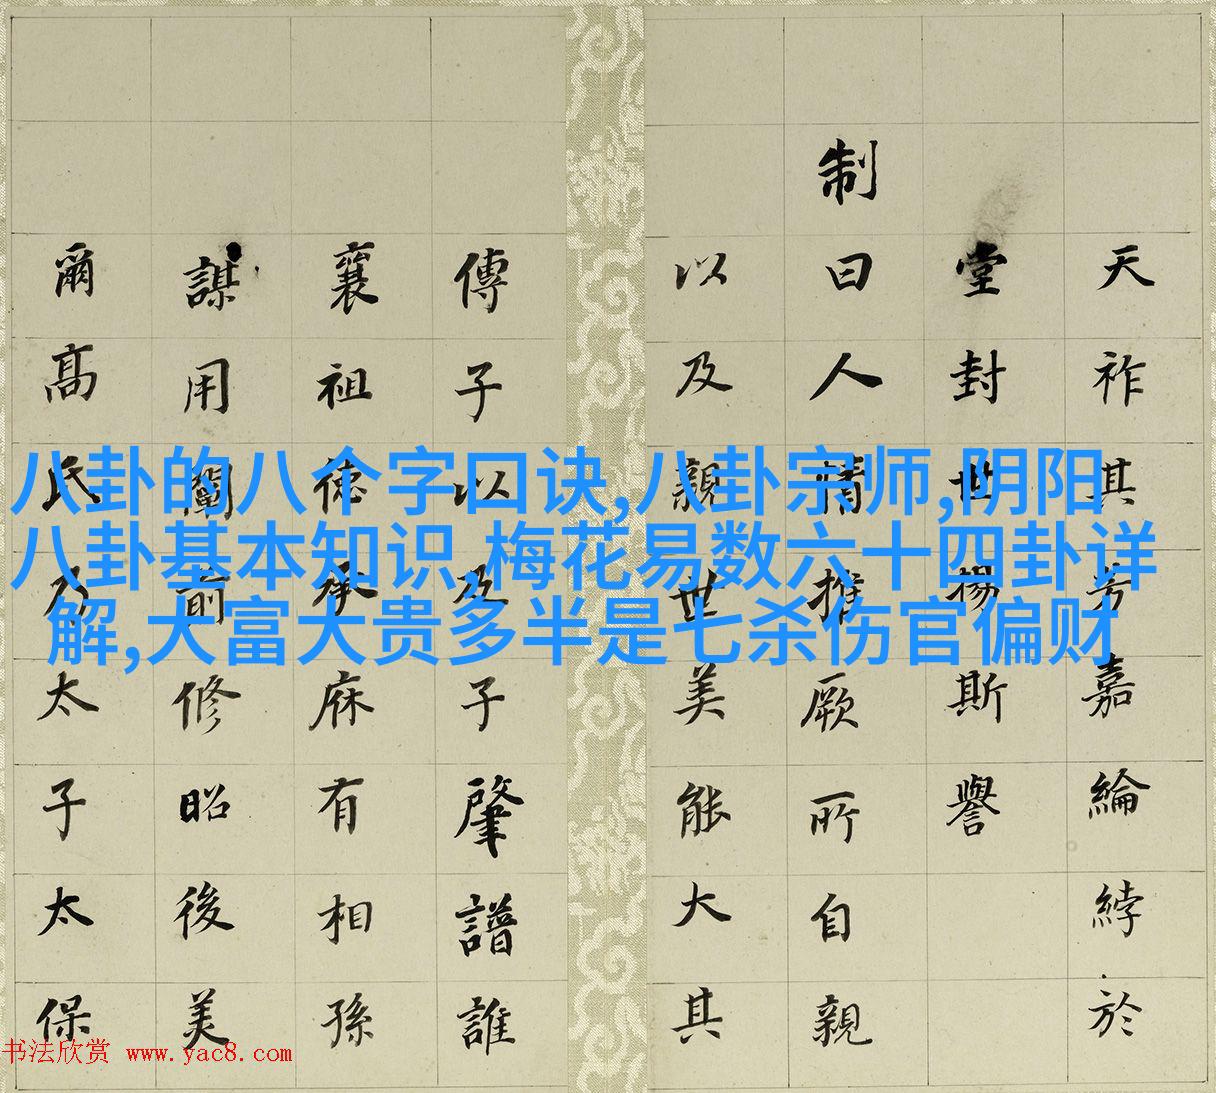 天祚其芳嘉綸綍於
堂封世揚斯譽
制曰人情推厥所自親
以及親世美能大其
傳子以及子肇譜誰
襄祖德承庥有相孫
謀用闡前修昭後美
爾高氏乃太子太保
八卦的八个字口诀,八卦宗师,阴阳
八卦基本知识,梅花易数六十四卦详
解,大富大贵多半是七杀伤官偏财
书法欣赏 www.yac8.com